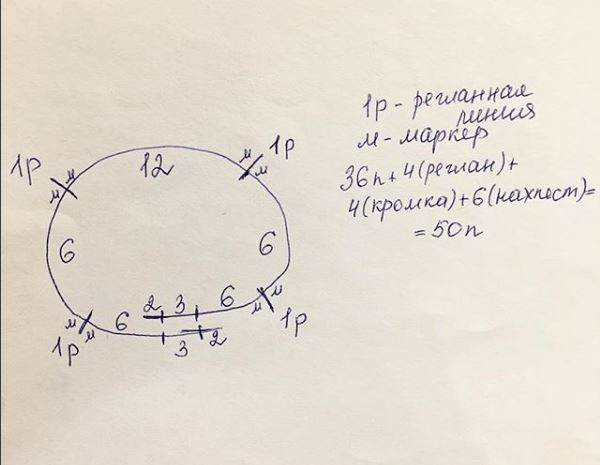 1р
м м
12
м м
1р
6
6
м м
1р
6
2
3
6
м м
1р
3
2
1р - регланная
линия
м - маркер
36п + 4(реглан) +
4(кромка) + 6(нахлест) =
= 50п